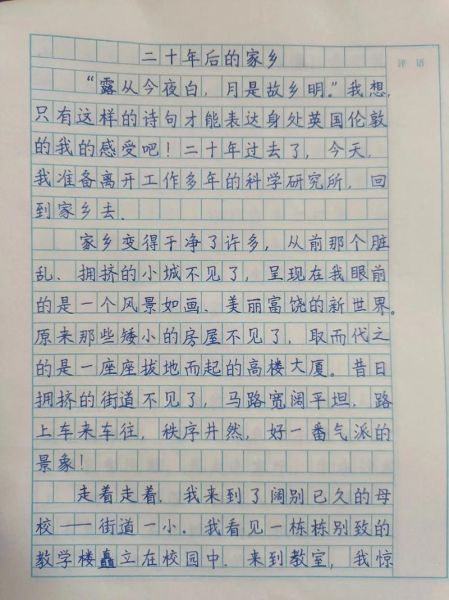 二十年后的家乡
评语
“露从今夜白，月是故乡明。”我想，
只有这样的诗句才能表达身处英国伦敦
的我的感受吧！二十年过去了，今天，
我准备离开工作多年的科学研究所，回
到家乡去.
家乡变得干净了许多，从前那个脏
乱、拥挤的小城不见了，呈现在我眼前
的是一个风景如画、美丽富饶的新世界。
原来那些矮小的房屋不见了，取而代之
的是一座座拔地而起的高楼大厦。昔日
拥挤的街道不见了，马路宽阔平坦，路
上车来车往，秩序井然，好一番气派的
景象！
走着走着，我来到了阔别已久的母
校——街道一小。我看见一栋栋别致的
教学楼矗立在校园中.来到教室，我惊